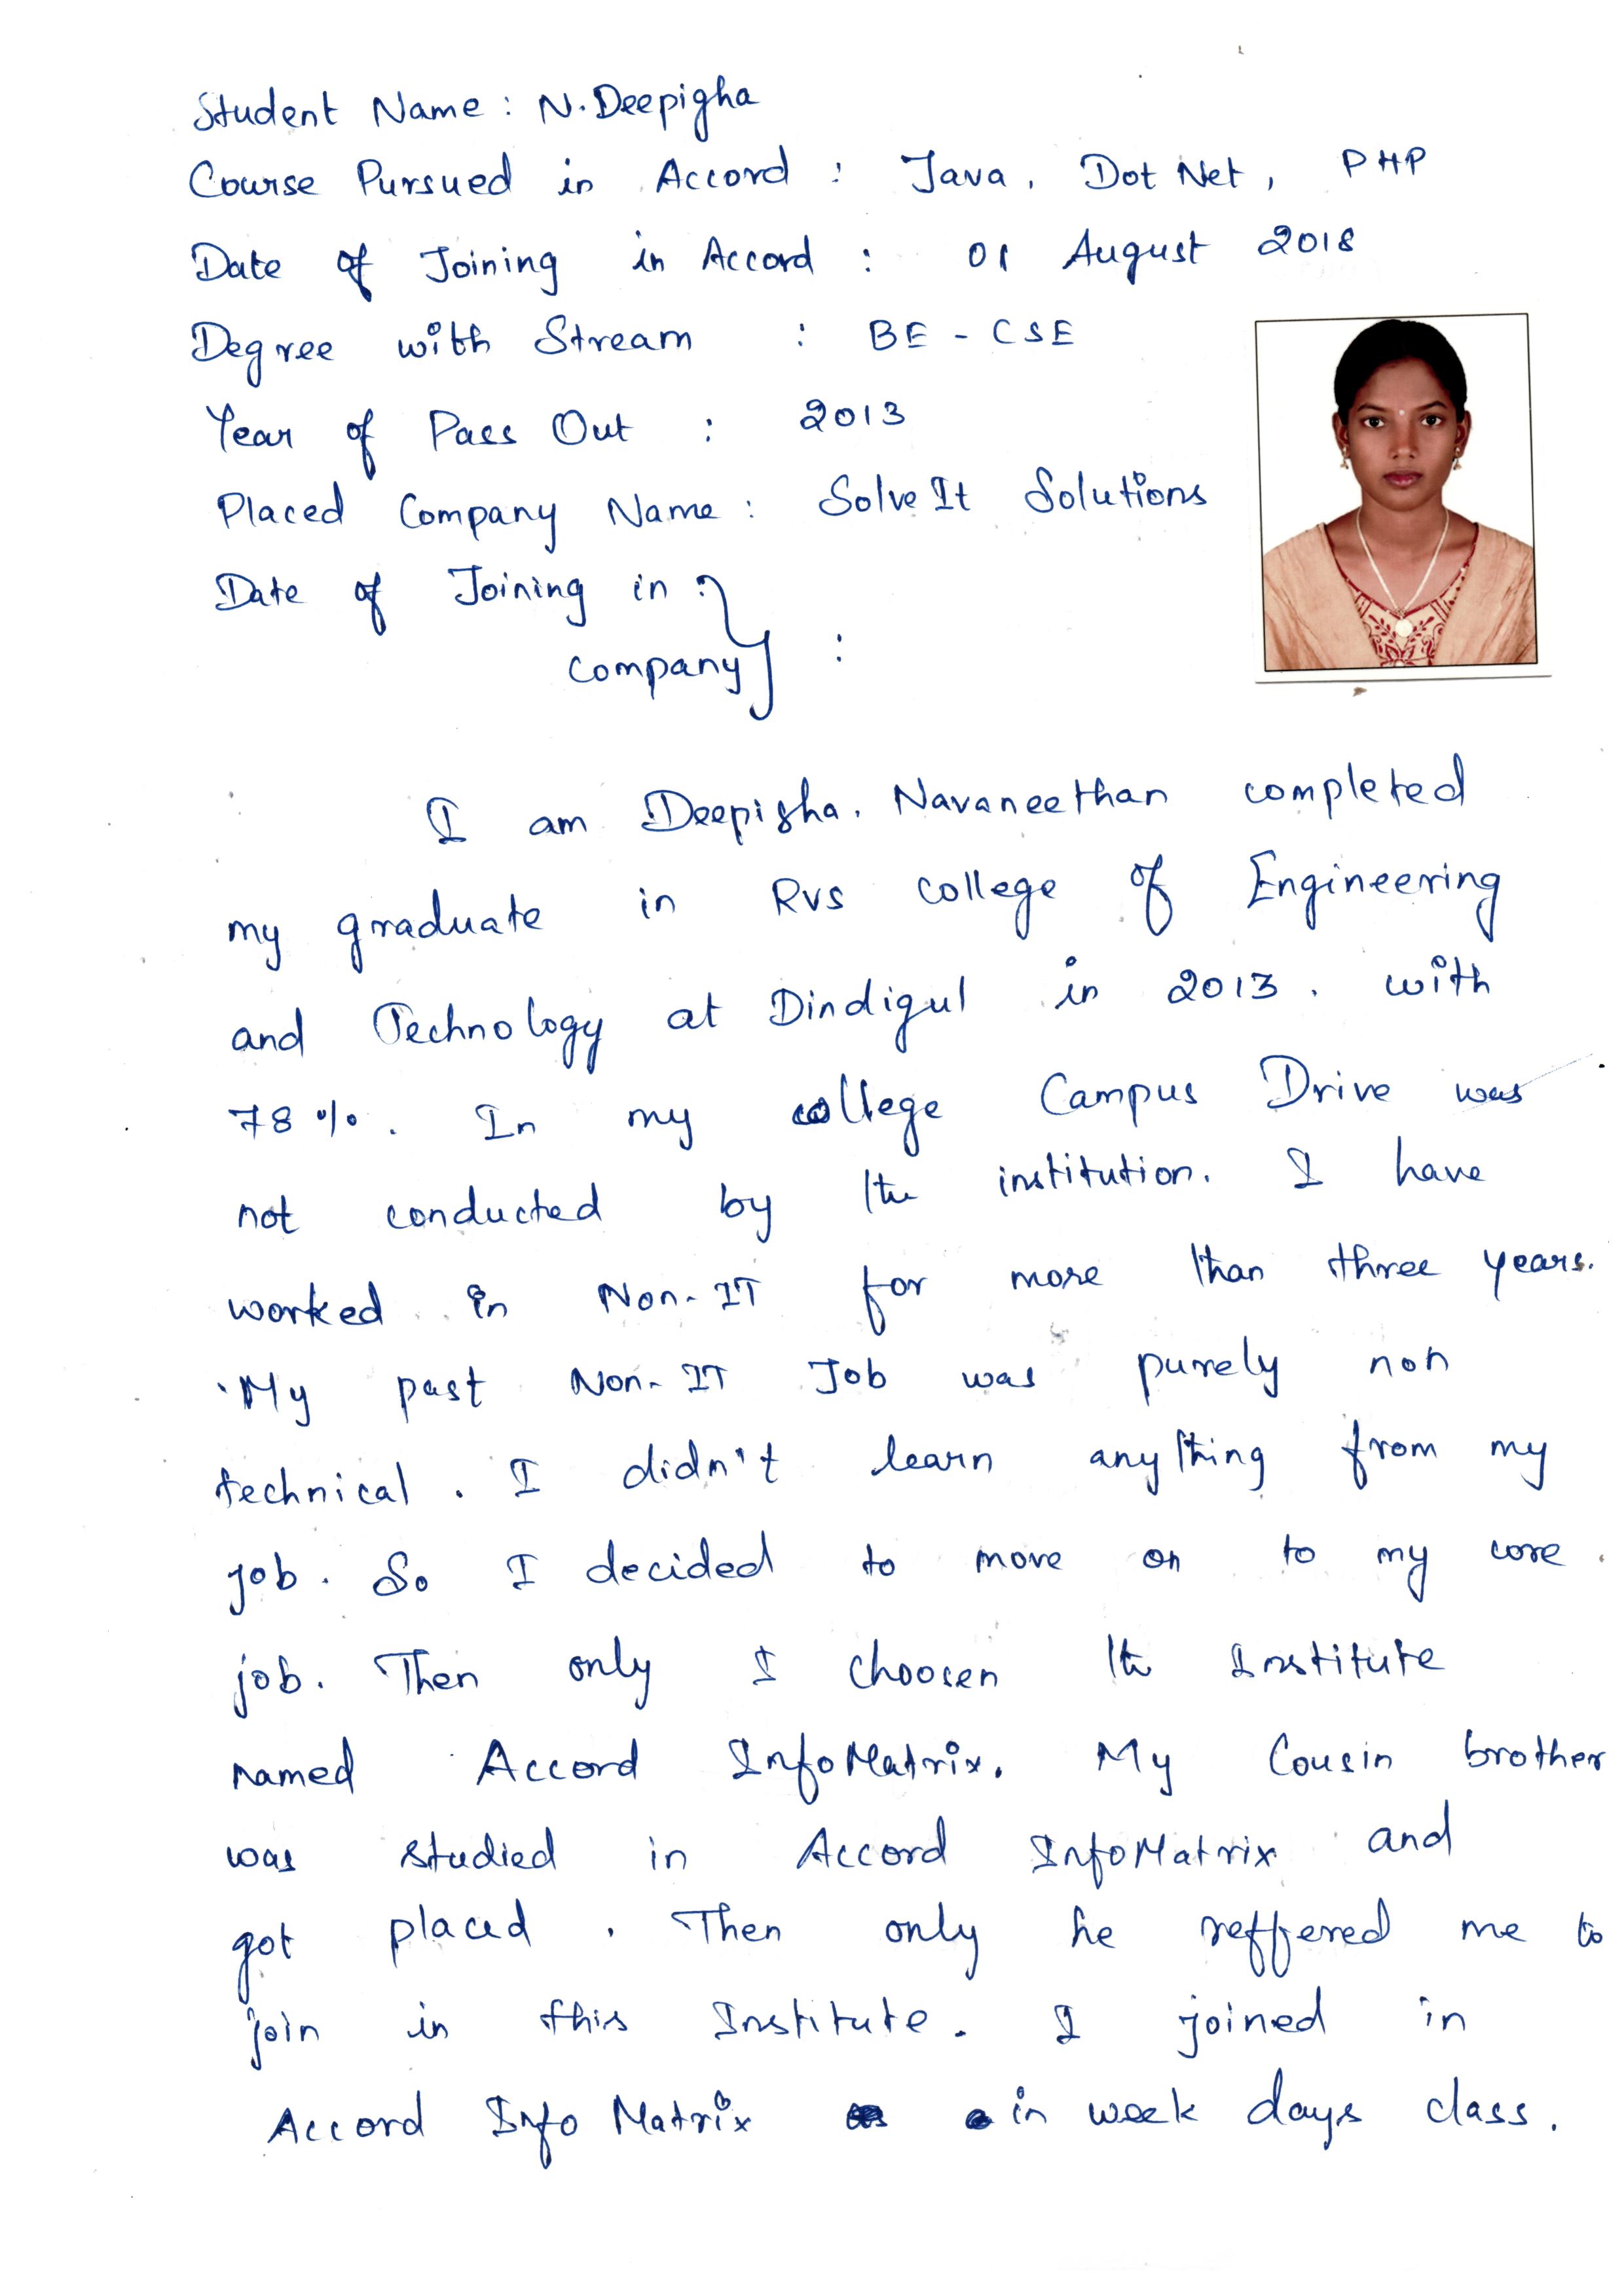 Student Name : N. Deepigha
Course Pursued in Accord : Java, Dot Net, PHP
Date of Joining in Accord : 01 August 2018
Degree with Stream : BE - CSE
Year of Pass Out : 2013
Placed Company Name : Solve It Solutions
Date of Joining in :
Company :
I am Deepigha. Navaneethan completed
my graduate in RVS college of Engineering
and Technology at Dindigul in 2013. with
78 %. In my college Campus Drive was
not conducted by the institution. I have
worked in Non-IT for more than three years.
My past Non-IT Job was purely non
technical. I didn't learn anything from my
job. So I decided to move on to my core
job. Then only I choosen the Institute
named Accord InfoMatrix. My Cousin brother
was studied in Accord InfoMatrix and
got placed. Then only he reffered me to
join in this Institute. I joined in
Accord Info Matrix in week days class.